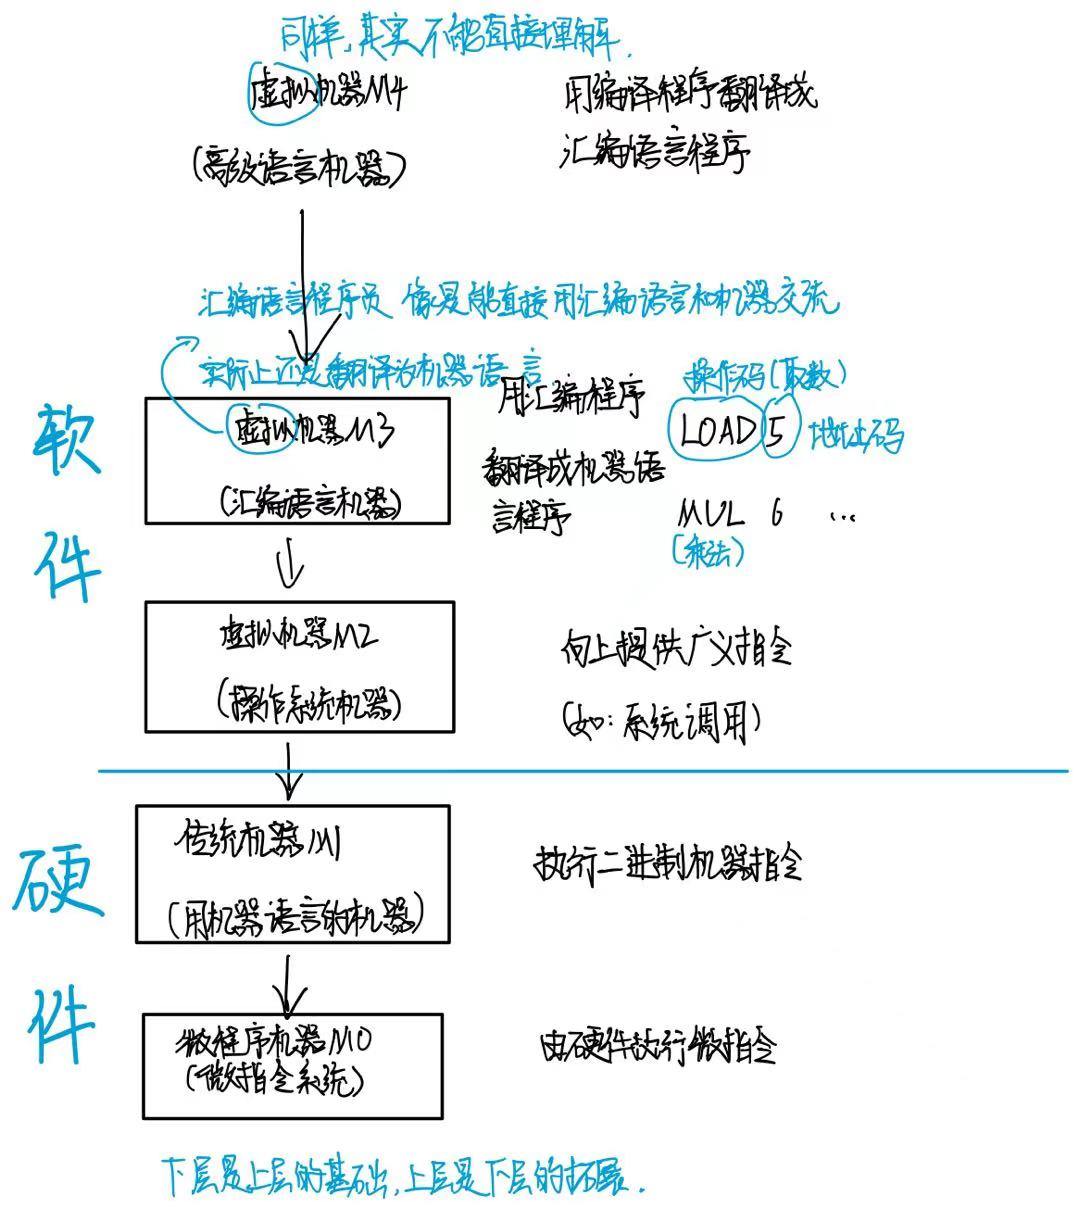 同样,其实不能直接理解.
虚拟机器M4
用编译程序翻译成
汇编语言程序
(高级语言机器)
汇编语言程序员 像是能直接用汇编语言和机器交流
实际上还是翻译为机器语言
软件
虚拟机器M3
(汇编语言机器)
用汇编程序
翻译成机器语
言程序
操作码(取数)
LOAD 5 地址码
MUL 6 ...
(乘法)
虚拟机器M2
(操作系统机器)
向上提供广义指令
(如:系统调用)
硬件
传统机器M1
(用机器语言的机器)
执行二进制机器指令
微程序机器M0
(微指令系统)
由硬件执行微指令
下层是上层的基础,上层是下层的拓展.